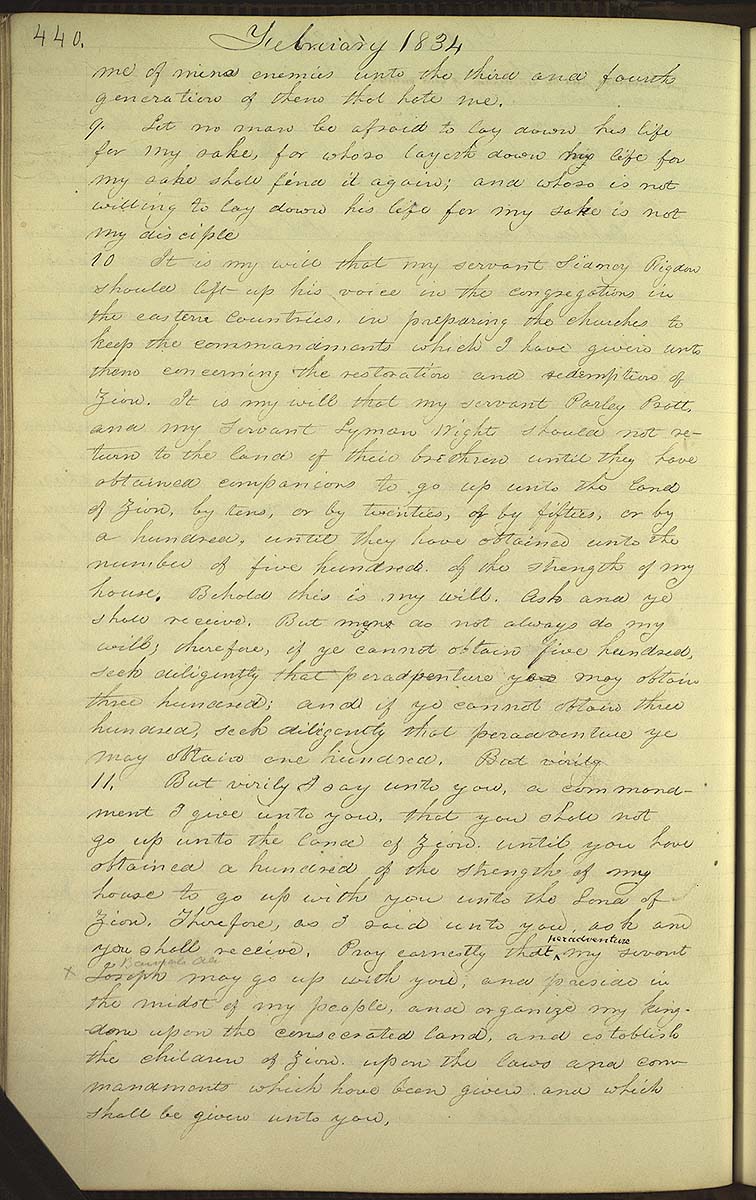 440.
February 1834
me of mine enemies unto the third and fourth
generation of them that hate me.
9. Let no man be afraid to lay down his life
for my sake, for whoso layeth down his life for
my sake shall find it again; and whoso is not
willing to lay down his life for my sake is not
my disciple
10 It is my will that my servant Sidney Rigdon
should lift up his voice in the congregations in
the eastern countries. in preparing the churches to
keep the commandments which I have given unto
them concerning the restoration and redemption of
Zion. It is my will that my servant Parley Pratt,
and my servant Lyman Wight should not re-
turn to the land of their brethren until they have
obtained companions to go up unto the land
of Zion, by tens, or by twenties, or by fifties, or by
a hundred, until they have obtained unto the
number of five hundred. of the strength of my
house. Behold this is my will. Ask and ye
shall receive. But men do not always do my
will; therefore, if ye cannot obtain five hundred,
seek diligently that peradventure ye may obtain
three hundred; and if ye cannot obtain three
hundred, seek diligently that peradventure ye
may obtain one hundred. But virily
11. But virily I say unto you, a command-
ment I give unto you, that you shall not
go up unto the land of Zion. until you have
obtained a hundred of the strength of my
house to go up with you unto the land of
Zion. Therefore, as I said unto you, ask and
peradventure
you shall receive, Pray earnestly that my servant
Baurale Ale
x Joseph may go up with you, and preside in
the midst of my people, and organize my king-
dom upon the consecrated land, and establish
the children of Zion. upon the laws and com-
mandments which have been given and which
shall be given unto you.